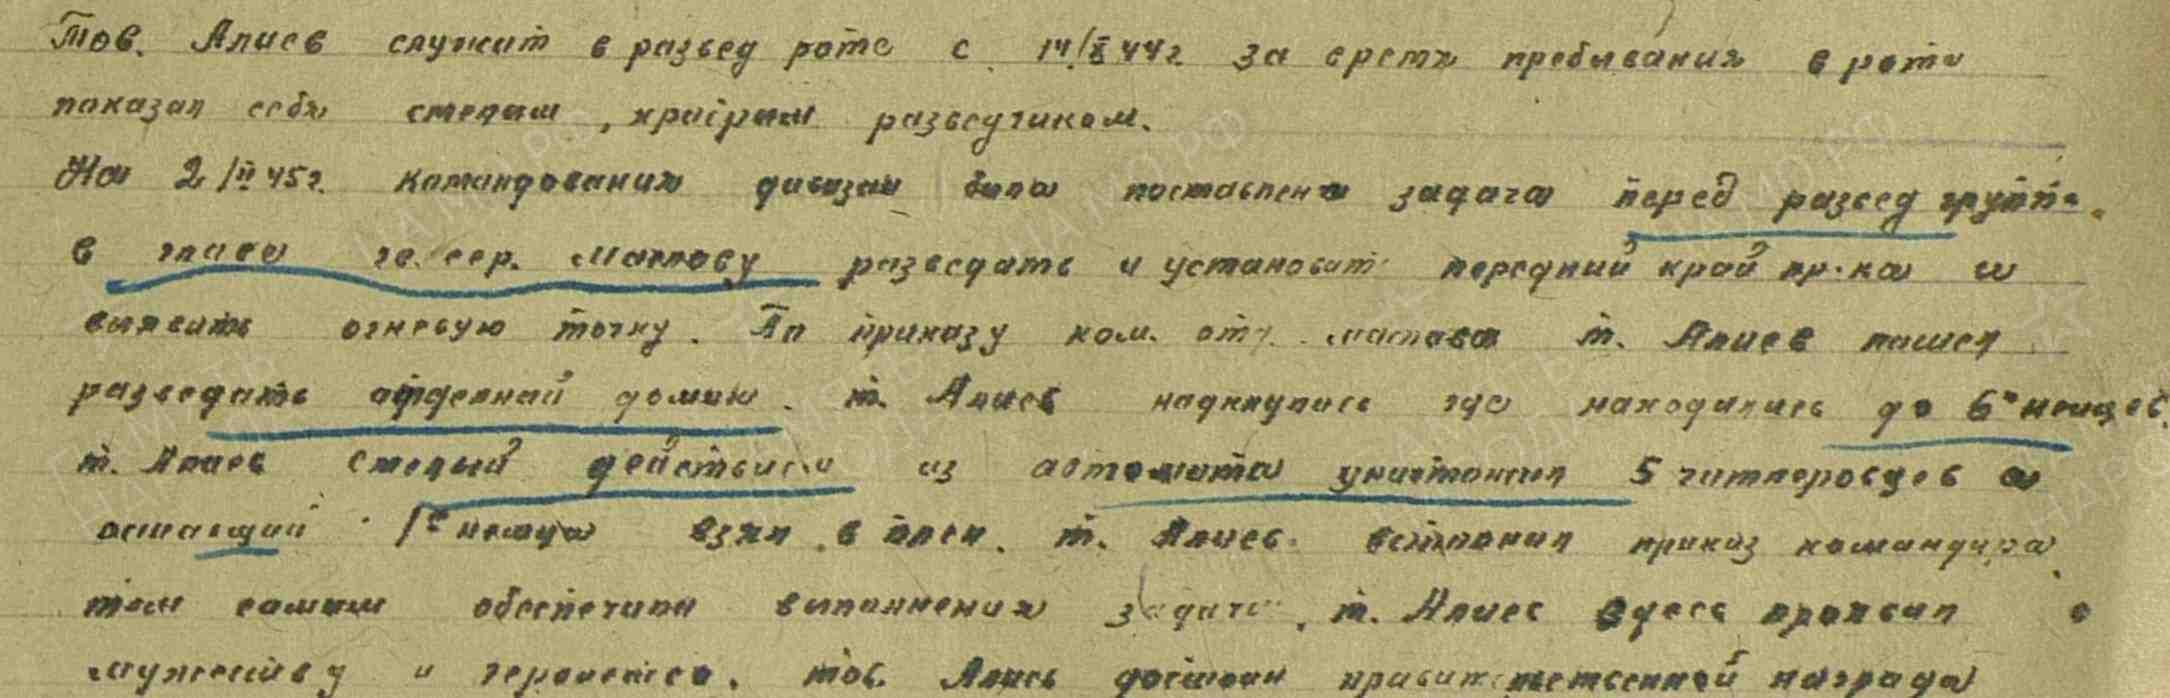 Тов. Алиев служит в развед роте с 14/X 44г за время пребывания в роте
показал себя смелым, храбрым разведчиком.
На 2/II 45г. командования дивизии была поставлена задача перед развед группе
в главе сер. Маслову разведать и установить передний край пр-ка и
выявить огневую точку. По приказу ком. отд. Маслова т. Алиев пошел
разведать отделнай домик. т. Алиев надкнулись где находились до 6и немцев.
т. Алиев смелый действием из автомата уничтожил 5 гитлеровцев а
остающий 1го немца взял в плен. т. Алиев выполнил приказ командира
тем самым обеспечила выполнения задачи. т. Алиев здесь проявил
мужеству и героиство. тов. Алиев достоин правительственной награда
НАРОДА
НАМО РФ